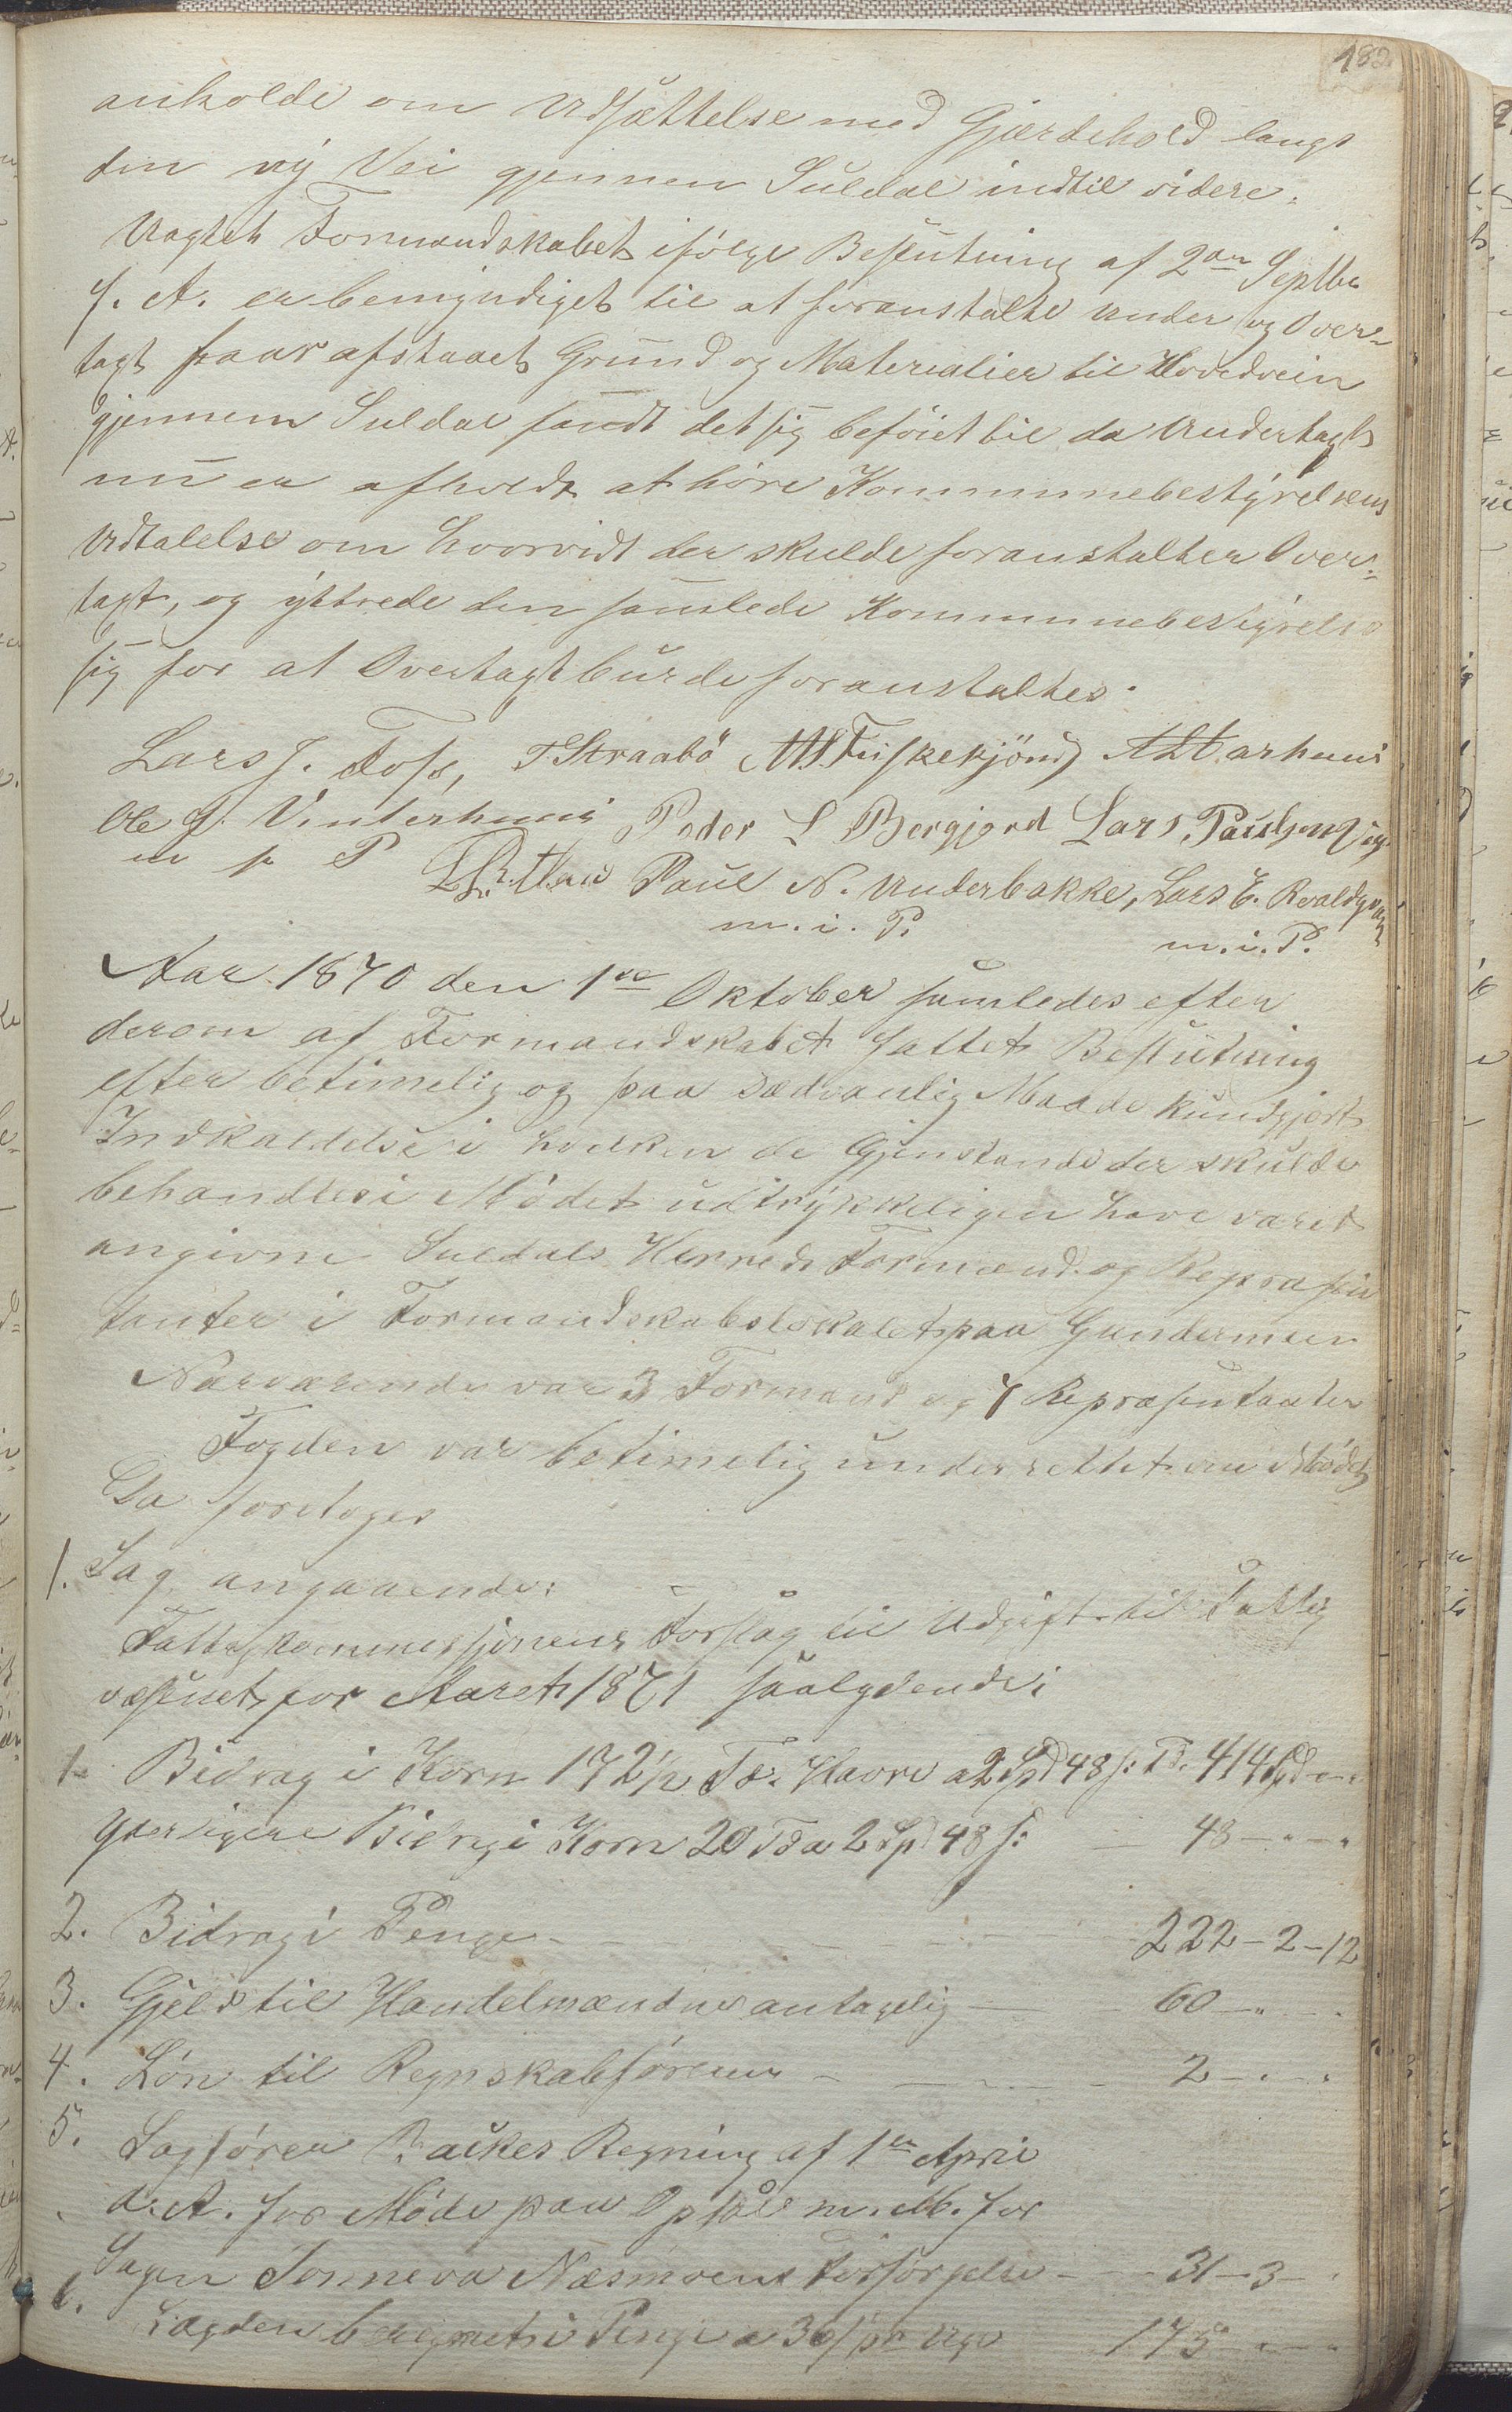 182
anholde om Udsættelse med Gjærdehold langs
den ny Vei gjennem Suldal indtil videre.
Uagtet Formandskabet ifølge Beslutning af 2den Septbr
f. A. er bemyndiget til at foranstalte Under og Over-
tagt paa afstaaet Grund og Materialier til Hovedveien
gjennem Suldal fandt det sig beføiet til da Undertagt
nu er afholdt at høre Kommunebestyrelsens
Udtalelse om hvorvidt der skulde foranstaltes Over-
tagt, og yttrede den samlede Kommunebestyrelse
sig for at Overtagt burde foranstaltes.
Lars J. Foss, T Straabö Fiskekjönd Aarhuus
Ole J. Vinterhuus Peder L Bergjord Lars Paulsen
m p P Paul N. Underbakke, Lars E. Kvaldgvam
m. i. P. m. i. P.
Aar 1870 den 1ste Oktober samledes efter
derom af Formandskabet fattet Beslutning
efter betimelig og paa sædvanlig Maade kundgjort
Indkaldelse i hvilken de Gjenstande der skulde
behandles i Mødet udtrykkeligen have været
angivne Suldals Herreds Formænd og Repræsen
tanter i Formandskabslokalet paa Gundersmeen
Nærværende var 3 Formænd og 7 Repræsentanter
Fogden var betimelig underrettet om Mödet
Da foretoges
1. Sag angaaende:
Fattigkommissjonens Forslag til Udgift til Fattig
væsenet for Aaret 1871 saalydende:
1. Bidrag i Korn 172 1/2 Td. Havre a 2 Spd 48 s: Td. 414 Spd - " - "
yderligere Bidrag i Korn 20 Td a 2 Spd 48 s: - 48 - " - "
2. Bidrag i Penge - 222 - 2 - 12
3. Gjeld til Handelsmændene antagelig - 60 - " - "
4. Løn til Regnskabsføreren - 2 - " - "
5. Sagfører Backes Regning af 1ste April
d. A. for Møde paa Opsal m. M. for
Sagen Sonneva Næsmoens Forsørgelse - 31 - 3 - "
6. Lægden beregnet i Penge a 36 s pr Uge 175 - " - "